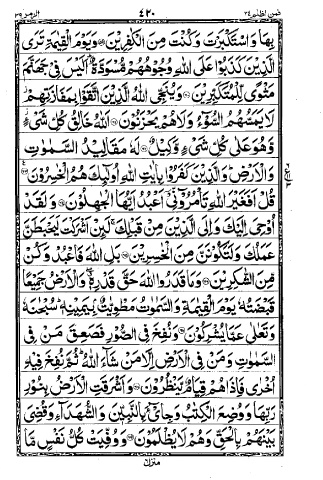 فمن اظلم ٢٤ ٤٢٠ الزمر ٣٩
بِهَا وَاسْتَكْبَرْتَ وَكُنْتَ مِنَ الْكٰفِرِيْنَ وَيَوْمَ الْقِيٰمَةِ تَرَى
الَّذِيْنَ كَذَبُوْا عَلَى اللّٰهِ وُجُوْهُهُمْ مُّسْوَدَّةٌ اَلَيْسَ فِيْ جَهَنَّمَ
مَثْوًى لِّلْمُتَكَبِّرِيْنَ وَيُنَجِّي اللّٰهُ الَّذِيْنَ اتَّقَوْا بِمَفَازَتِهِمْ
لَا يَمَسُّهُمُ السُّوْٓءُ وَلَا هُمْ يَحْزَنُوْنَ اَللّٰهُ خَالِقُ كُلِّ شَيْءٍ
وَّهُوَ عَلٰى كُلِّ شَيْءٍ وَّكِيْلٌ لَهٗ مَقَالِيْدُ السَّمٰوٰتِ
وَالْاَرْضِ وَالَّذِيْنَ كَفَرُوْا بِاٰيٰتِ اللّٰهِ اُولٰٓئِكَ هُمُ الْخٰسِرُوْنَ
قُلْ اَفَغَيْرَ اللّٰهِ تَاْمُرُوْٓنِّيْٓ اَعْبُدُ اَيُّهَا الْجٰهِلُوْنَ وَلَقَدْ
اُوْحِيَ اِلَيْكَ وَاِلَى الَّذِيْنَ مِنْ قَبْلِكَ لَئِنْ اَشْرَكْتَ لَيَحْبَطَنَّ
عَمَلُكَ وَلَتَكُوْنَنَّ مِنَ الْخٰسِرِيْنَ بَلِ اللّٰهَ فَاعْبُدْ وَكُنْ
مِّنَ الشّٰكِرِيْنَ وَمَا قَدَرُوا اللّٰهَ حَقَّ قَدْرِهٖ وَالْاَرْضُ جَمِيْعًا
قَبْضَتُهٗ يَوْمَ الْقِيٰمَةِ وَالسَّمٰوٰتُ مَطْوِيّٰتٌۢ بِيَمِيْنِهٖ سُبْحٰنَهٗ
وَتَعٰلٰى عَمَّا يُشْرِكُوْنَ وَنُفِخَ فِي الصُّوْرِ فَصَعِقَ مَنْ فِي
السَّمٰوٰتِ وَمَنْ فِي الْاَرْضِ اِلَّا مَنْ شَآءَ اللّٰهُ ثُمَّ نُفِخَ فِيْهِ
اُخْرٰى فَاِذَا هُمْ قِيَامٌ يَّنْظُرُوْنَ وَاَشْرَقَتِ الْاَرْضُ بِنُوْرِ
رَبِّهَا وَوُضِعَ الْكِتٰبُ وَجِايْٓءَ بِالنَّبِيّٖنَ وَالشُّهَدَآءِ وَقُضِيَ
بَيْنَهُمْ بِالْحَقِّ وَهُمْ لَا يُظْلَمُوْنَ وَوُفِّيَتْ كُلُّ نَفْسٍ مَّا
منزل